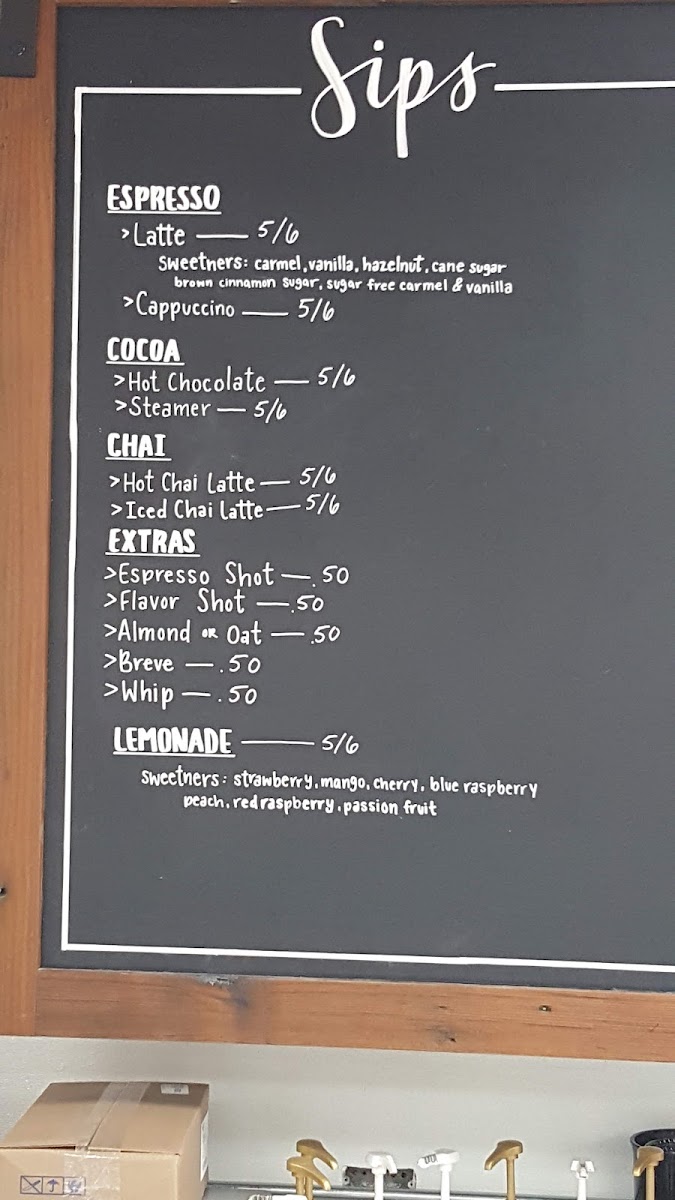 Sips
ESPRESSO
>Latte — 5/6
Sweetners: carmel, vanilla, hazelnut, cane sugar
brown cinnamon sugar, sugar free carmel & vanilla
>Cappuccino — 5/6
COCOA
>Hot Chocolate — 5/6
>Steamer — 5/6
CHAI
>Hot Chai Latte — 5/6
>Iced Chai Latte — 5/6
EXTRAS
>Espresso Shot — .50
>Flavor Shot — .50
>Almond OR Oat — .50
>Breve — .50
>Whip — .50
LEMONADE — 5/6
Sweetners: strawberry, mango, cherry, blue raspberry
peach, red raspberry, passion fruit